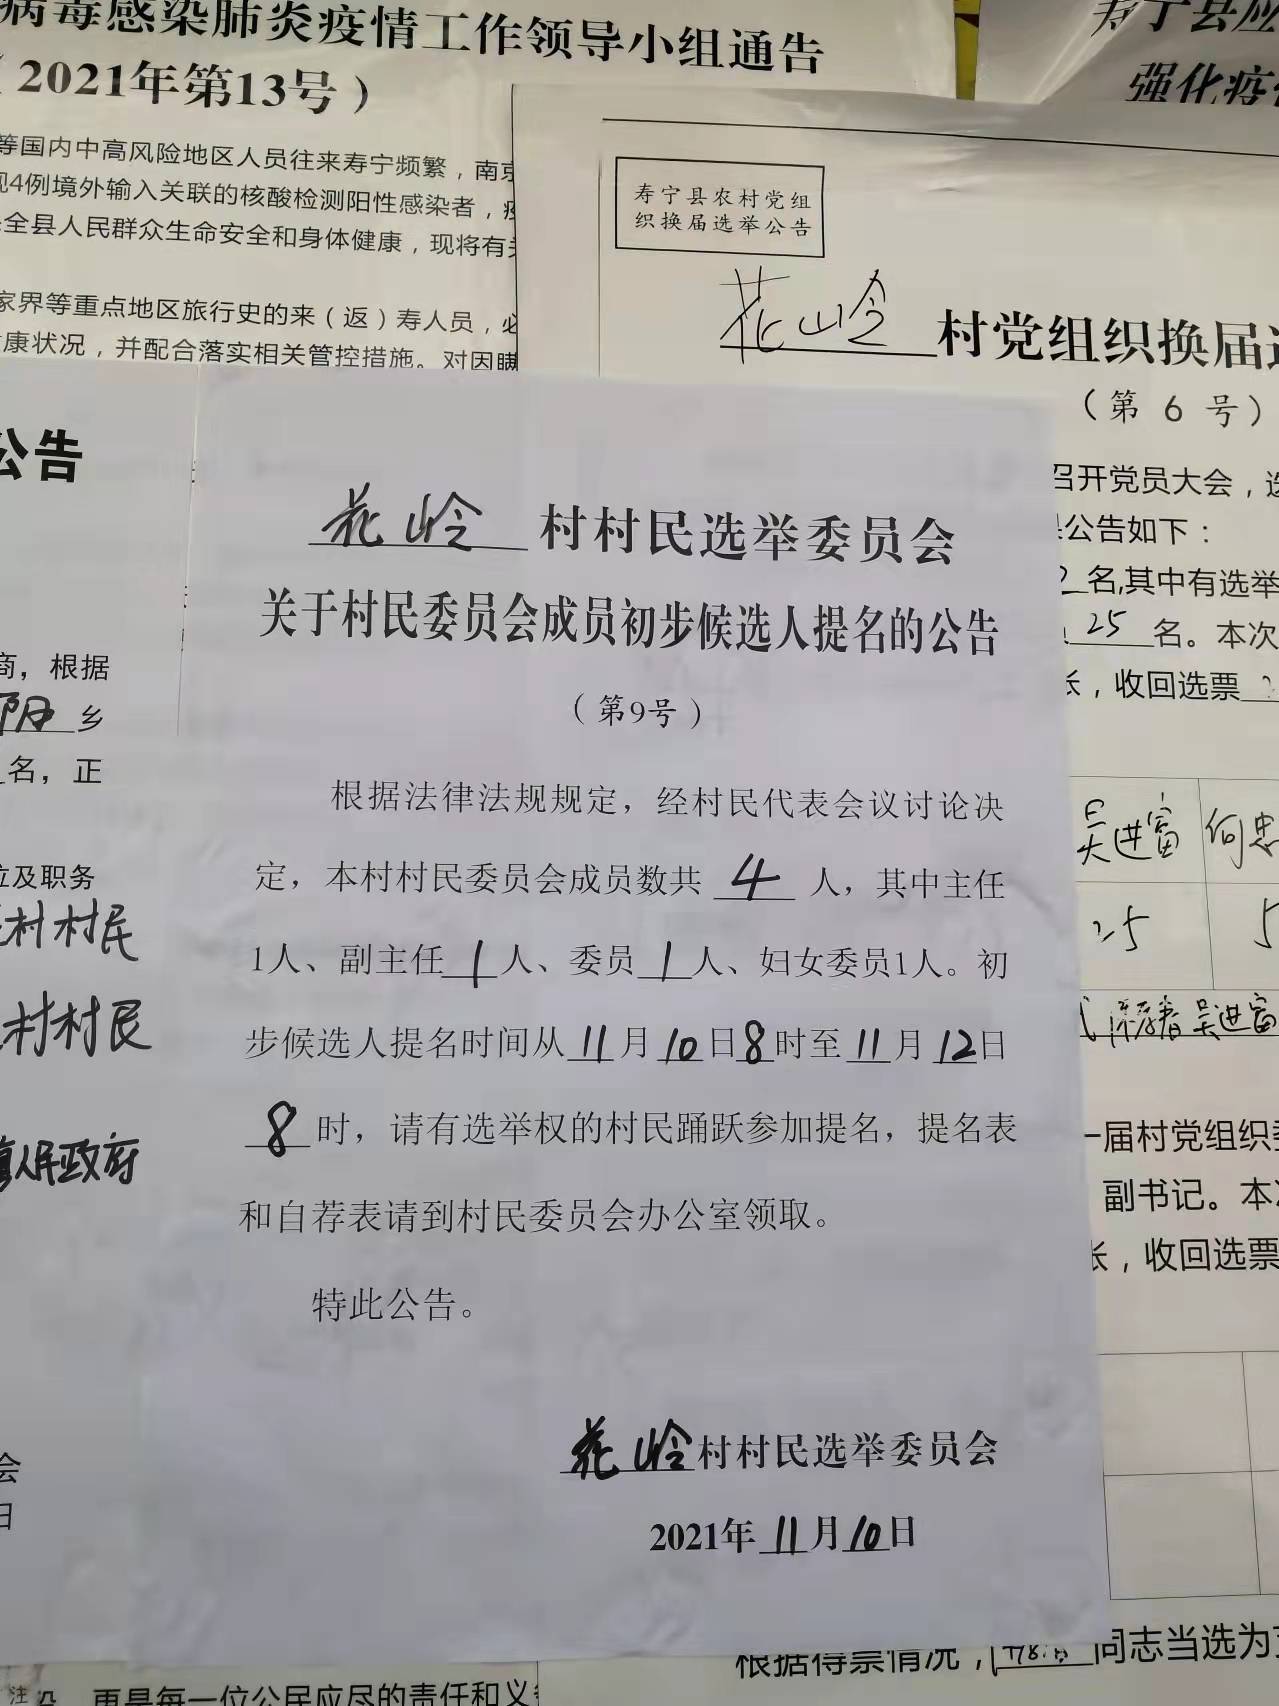 病毒感染肺炎疫情工作领导小组通告
（2021年第13号）
等国内中高风险地区人员往来寿宁频繁，南京
现4例境外输入关联的核酸检测阳性感染者，
全县人民群众生命安全和身体健康，现将有关
家界等重点地区旅行史的来（返）寿人员，必
康状况，并配合落实相关管控措施。对因瞒
寿宁县应
强化疫
寿宁县农村党组
织换届选举公告
花岭村党组织换届选
（第 6 号）
召开党员大会，选
公告如下：
名,其中有选举
25 名。本次
张，收回选票
吴进富 何忠
25 5
吴进富
一届村党组织委
副书记。本次
张，收回选票
根据得票情况， 同志当选为
公告
商，根据
阳乡
名，正
位及职务
村村民
村村民
镇人民政府
会
日
花岭村村民选举委员会
关于村民委员会成员初步候选人提名的公告
（第9号）
根据法律法规规定，经村民代表会议讨论决
定，本村村民委员会成员数共 4 人，其中主任
1人、副主任1人、委员1人、妇女委员1人。初
步候选人提名时间从11月10日8时至11月12日
8时，请有选举权的村民踊跃参加提名，提名表
和自荐表请到村民委员会办公室领取。
特此公告。
花岭村村民选举委员会
2021年11月10日
更是每一位公民应尽的责任和义务